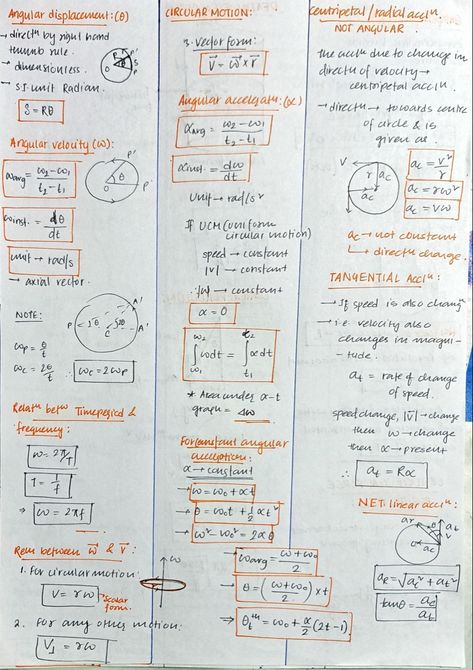 Angular displacement: (θ)
→ directn by right hand
thumb rule.
→ dimensionless.
→ SI unit Radian.
S = Rθ
Angular velocity (ω):
ωavg = ω2-ω1 / t2-t1
ωinst. = dθ / dt
unit → rad/s
→ axial vector.
NOTE:
ωP = θ/t
ωC = 2θ/t
∴ ωC = 2ωP
Relatn betn Timeperiod &
frequency:
ω = 2π/T
T = 1/f
⇒ ω = 2πf
Rem between ω⃗ & v⃗ :
1. For circular motion:
V = rω
→ Scalar
form.
2. For any other motion:
V⊥ = rω
CIRCULAR MOTION:
3. Vector form:
V⃗ = ω⃗ × r
Angular acceleratn: (α)
αavg = ω2-ω1 / t2-t1
αinst. = dω / dt
Unit → rad/s²
If UCM (uniform
circular motion)
speed → constant
|V| → constant
∴ |ω| → constant
α = 0
∫ω1ω2 ωdt = ∫t1t2 αdt
* Area under α-t
graph = Δω
For constant angular
α → constant
→ ω = ω0 + αt
→ θ = ω0t + 1/2 αt²
→ ω² - ω0² = 2αθ
→ ωavg = ω + ω0 / 2
⇒ θ = (ω+ω0 / 2) × t
⇒ θtth = ω0 + α/2 (2t-1)
centripetal / radial accln.
NOT ANGULAR.
The accln due to change in
directn of velocity →
centripetal accln.
→ directn → towards centre
of circle & is
given as.
ac = v²/r
ac = rω²
ac = vω
ac → not constant
↳ directn change.
TANGENTIAL Accln:
→ If speed is also
→ i.e velocity also
changes in magni-
tude.
at = rate of change
of speed.
speed change, |V| → change
then ω → change
then α → present
∴ at = Rα
NET linear accln:
= √ac² + at²
tanθ =